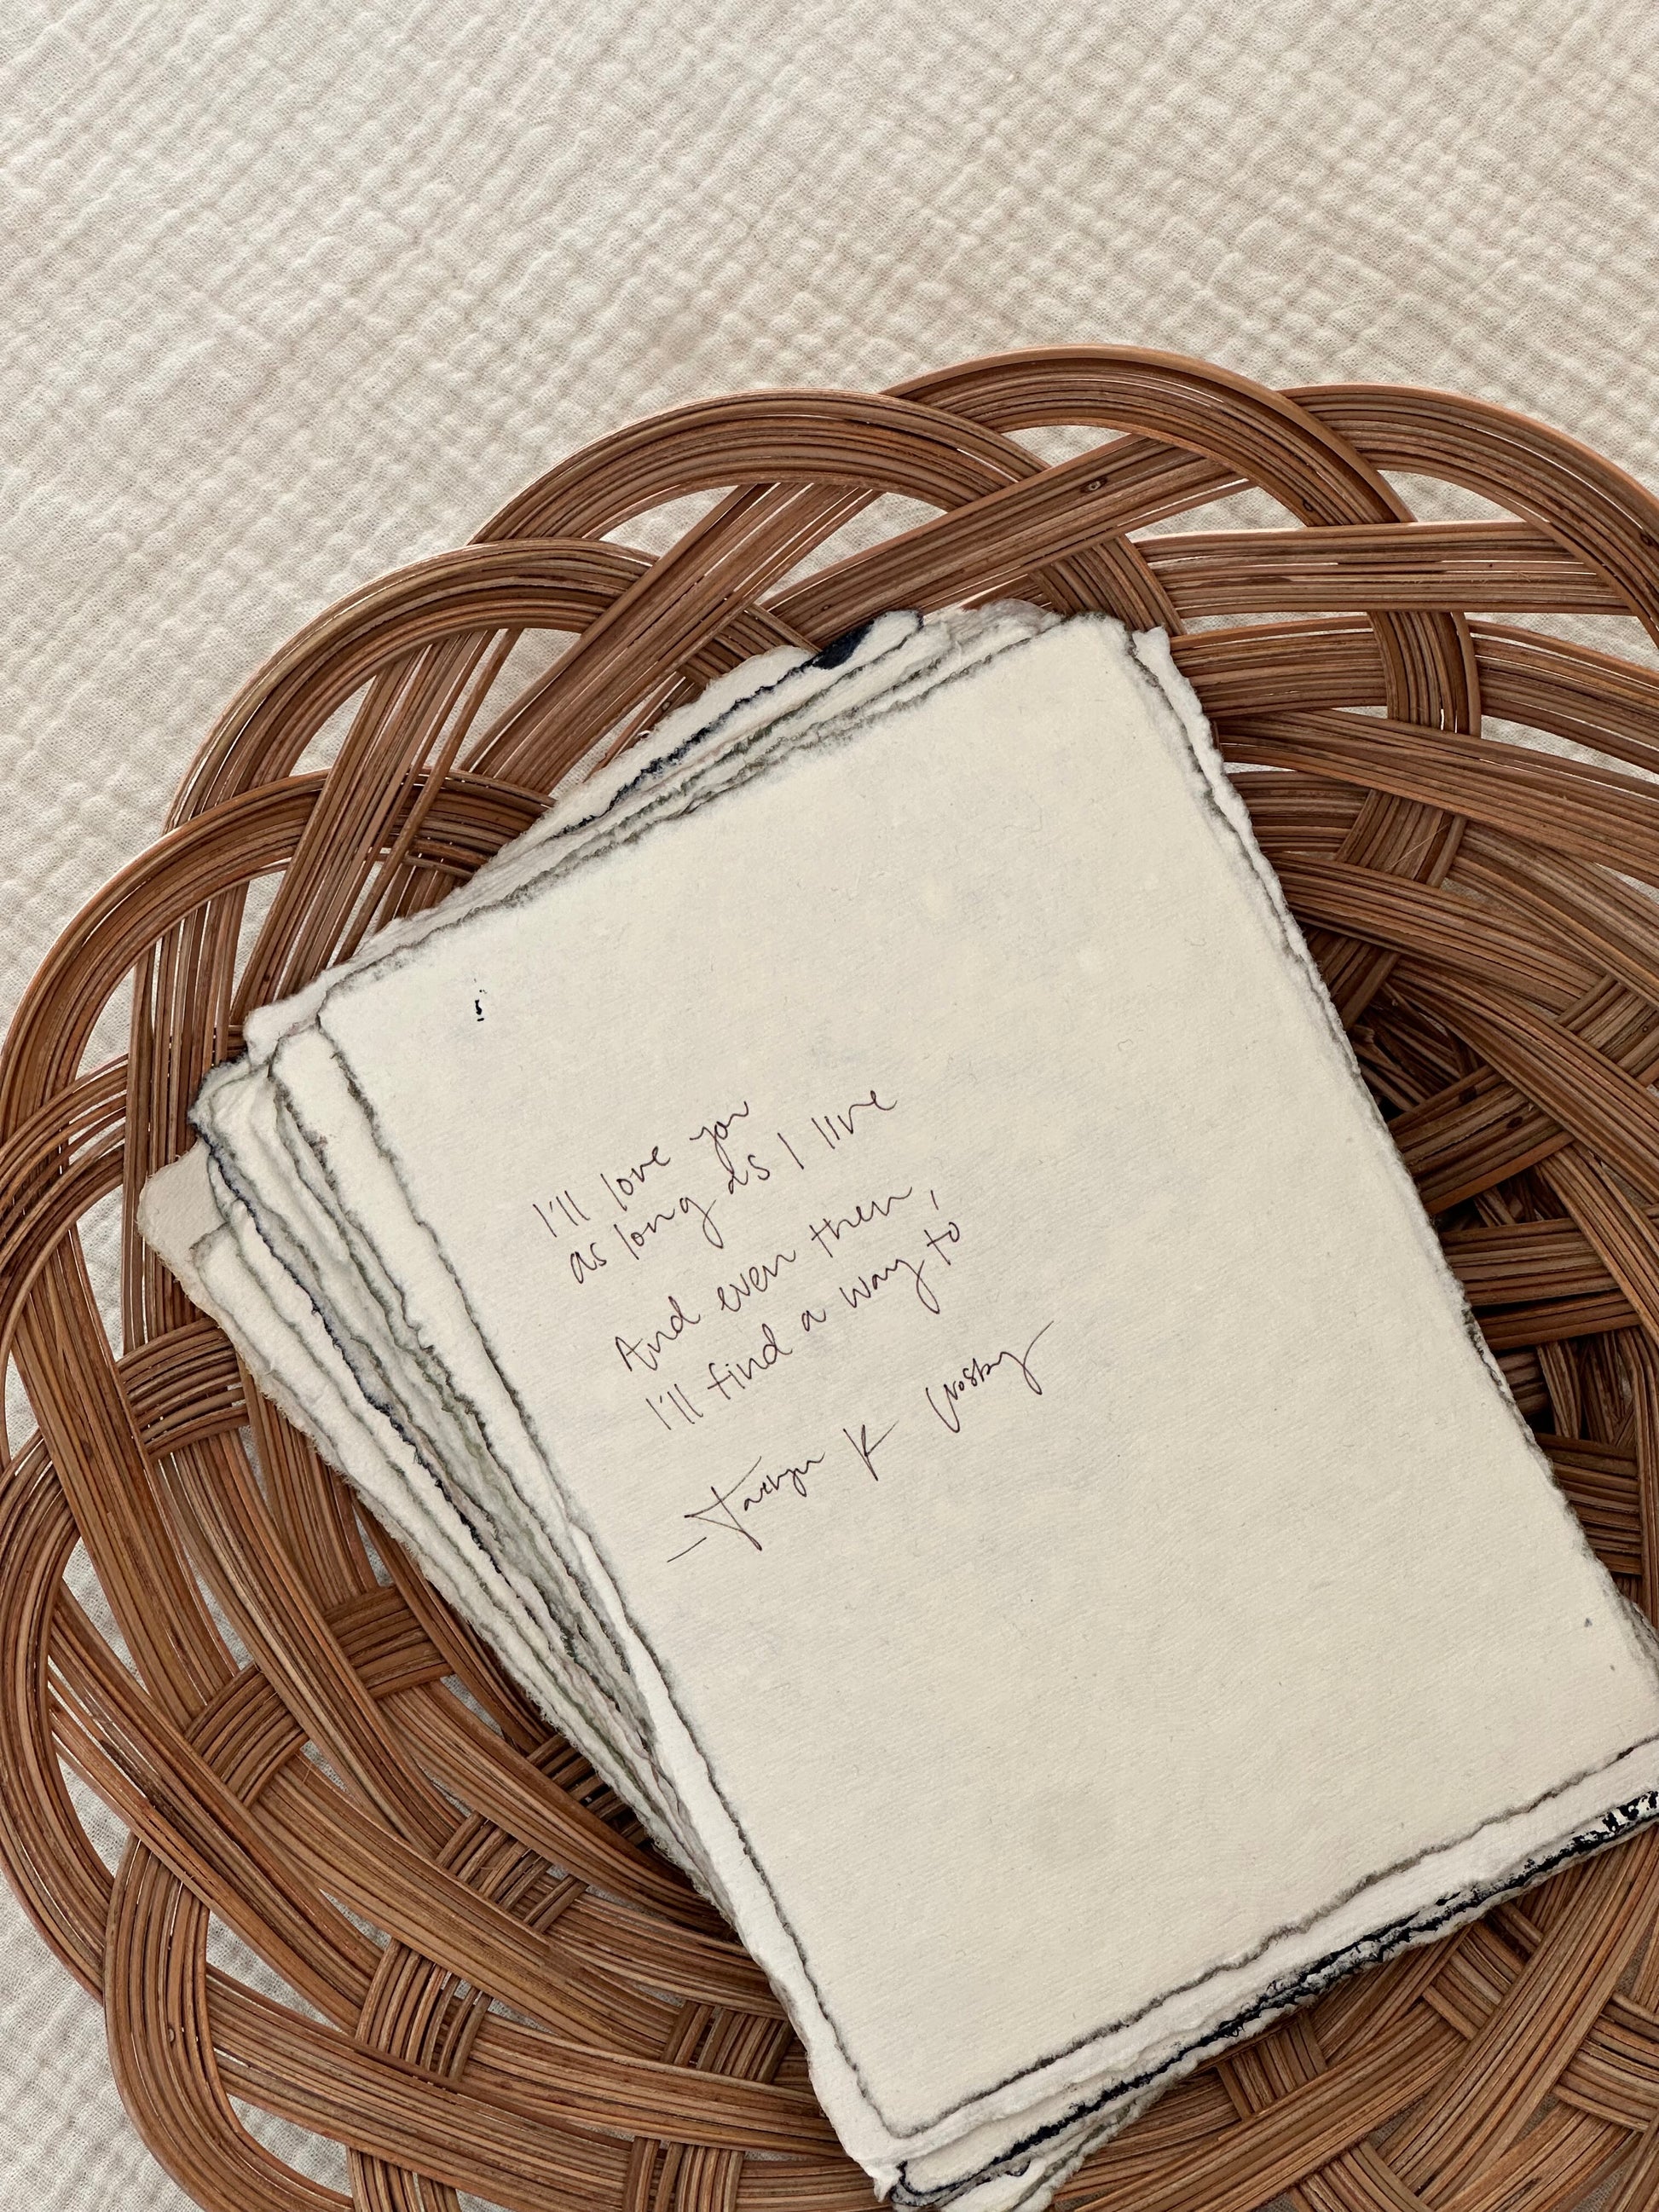 I'll love you
as long as I live
And even then,
I'll find a way to
—Tarhyn K Crosby